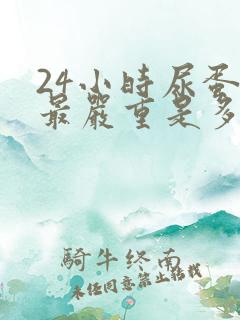 24小時尿蛋
最嚴重是多
騎牛終南
未任同意禁止轉載